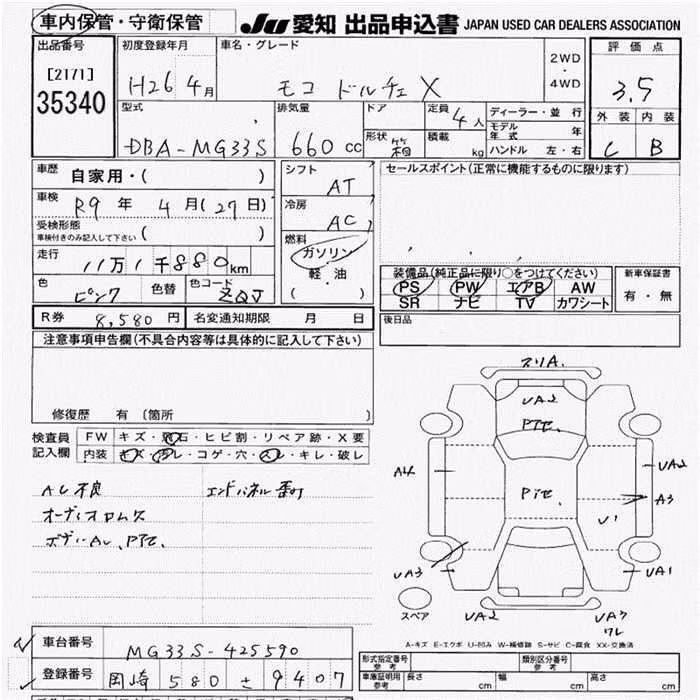 車内保管・守衛保管
JU 愛知 出品申込書 JAPAN USED CAR DEALERS ASSOCIATION
出品番号
[2171]
35340
初度登録年月
H26 4月
車名・グレード
モコ ドルチェ X
2WD
・
4WD
評価点
3.5
外装 内装
C B
型式
DBA-MG33S
排気量
660 cc
ドア
形状 箱
定員 4人
積載 kg
ディーラー・並行
モデル年式 年
ハンドル 左・右
車歴 自家用・( )
車検 R9年 4月(27日)
受検形態
車検付きのみ記入して下さい ( )
走行
11万1千880km
色 ピンク 色替 色コード ZQJ
シフト
AT
冷房
AC
燃料
ガソリン
軽・油
( )
セールスポイント(正常に機能するものに限ります)
装備品(純正品に限り○をつけてください)
PS PW エアB AW
SR ナビ TV カワシート
新車保証書
有・無
R券 8,580円 名変通知期限 月 日
後日品
注意事項申告欄(不具合内容等は具体的に記入して下さい)
修復歴 有 〔箇所 〕
検査員記入欄
FW キズ・飛石・ヒビ割・リペア跡・X要
内装 キズ・汚レ・コゲ・穴・スレ・キレ・破レ
AC不良
エンドパネル
オーディオ
ボディー
スリA.
UA2
Pイセ.
A4
Pイセ.
UA2
A3
U1
UA3
UA1
スペア
UA2
UA7
ワレ
A-キズ E-エクボ U-凹み W-補修跡 S-サビ C-腐食 XX-交換済
車台番号 MG33S-425590
登録番号 岡崎 580 と 9407
形式指定番号 参考
類別区分番号 参考
車庫証明用 参考
長さ cm 幅 cm 高さ cm